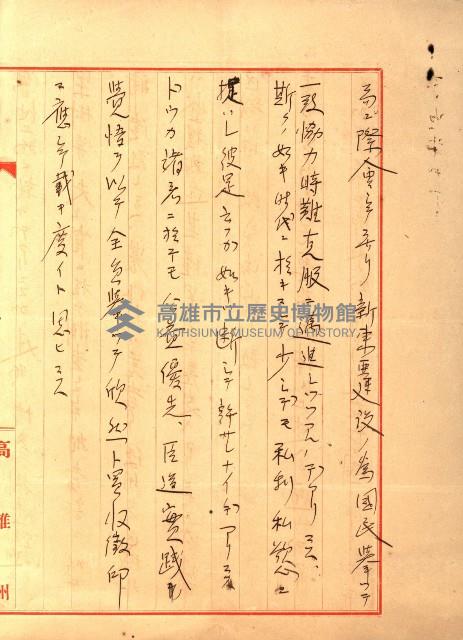 ニ際会シテ居リ新東亜建設ノ為国民挙ッテ
一致協力時難克服ニ邁進シツツアルノデアリマス、
斯クノ如キ時代ニ於キマシテ少シデモ私利私慾ニ
シ彼是云フガ如キハ断ジテ許サナイノデアリマス
ドウカ諸君ニ於テモ公益優先、臣道実践ノ
覚悟ヲ以テ全員挙ッテ欣然ト買収徴印
ニ応ジテ戴キ度イト思ヒマス
高雄州
高雄市立歷史博物館
KAOHSIUNG MUSEUM OF HISTORY